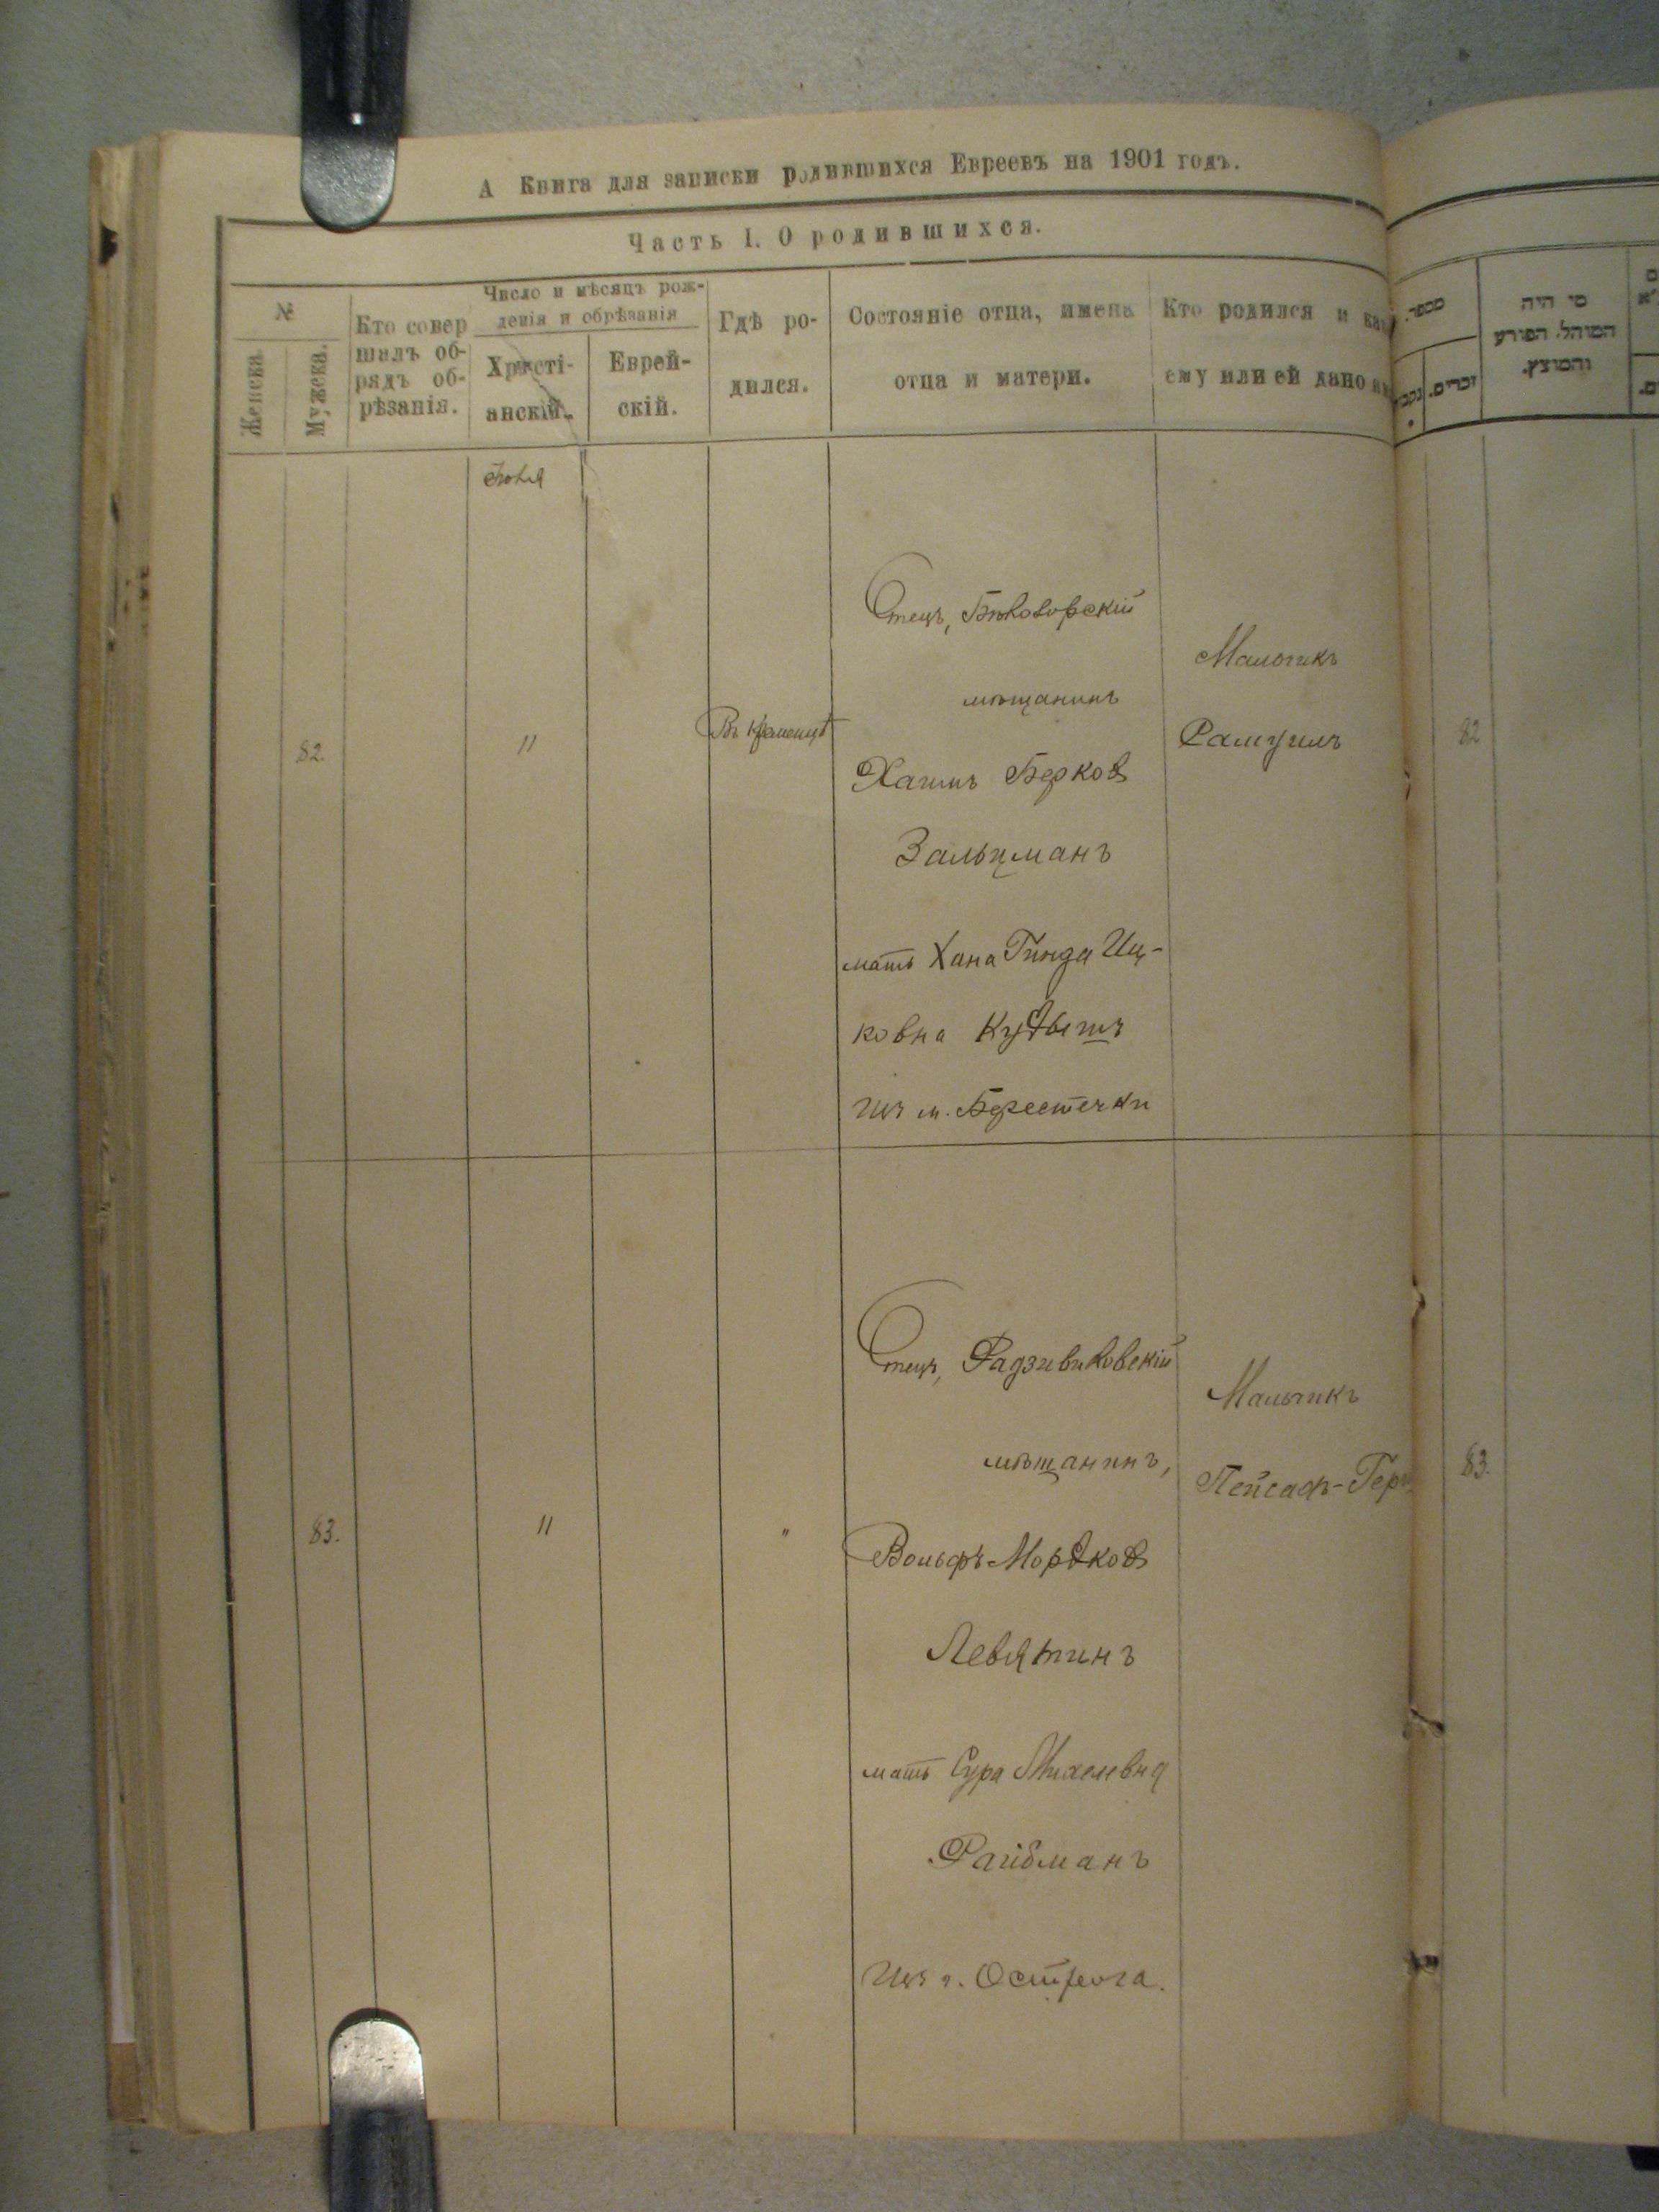 А Книга для записки родившихся Евреевъ на 1901 годъ.
Часть I. О родившихся.
№
Женска.
Мужска.
Кто совер
шалъ об-
рядъ об-
рѣзанія.
Число и мѣсяцъ рож-
денія и обрѣзанія
Христі-
анскій.
Еврей-
скій.
Гдѣ ро-
дился.
Состояніе отца, имена
отца и матери.
Кто родился и как
ему или ей дано
מספר.
זכרים.
מי היה
המוהל. הפורע
והמוצץ.
Іюля
82.
11
Въ Кременцѣ
Отецъ,
мѣщанинъ
Хаимъ Берков
Зальцманъ
мать Хана Гинда Иц-
ковна
Из м. Берестечки
Мальчикъ
Самуилъ
82
83.
11
"
Отецъ, Радзивиловскій
мѣщанинъ,
Вольфъ Мордков
Левятинъ
мать Сура Михелевна
Файбманъ
Из г. Острога.
Мальчикъ
Пейсах-Гер
83.